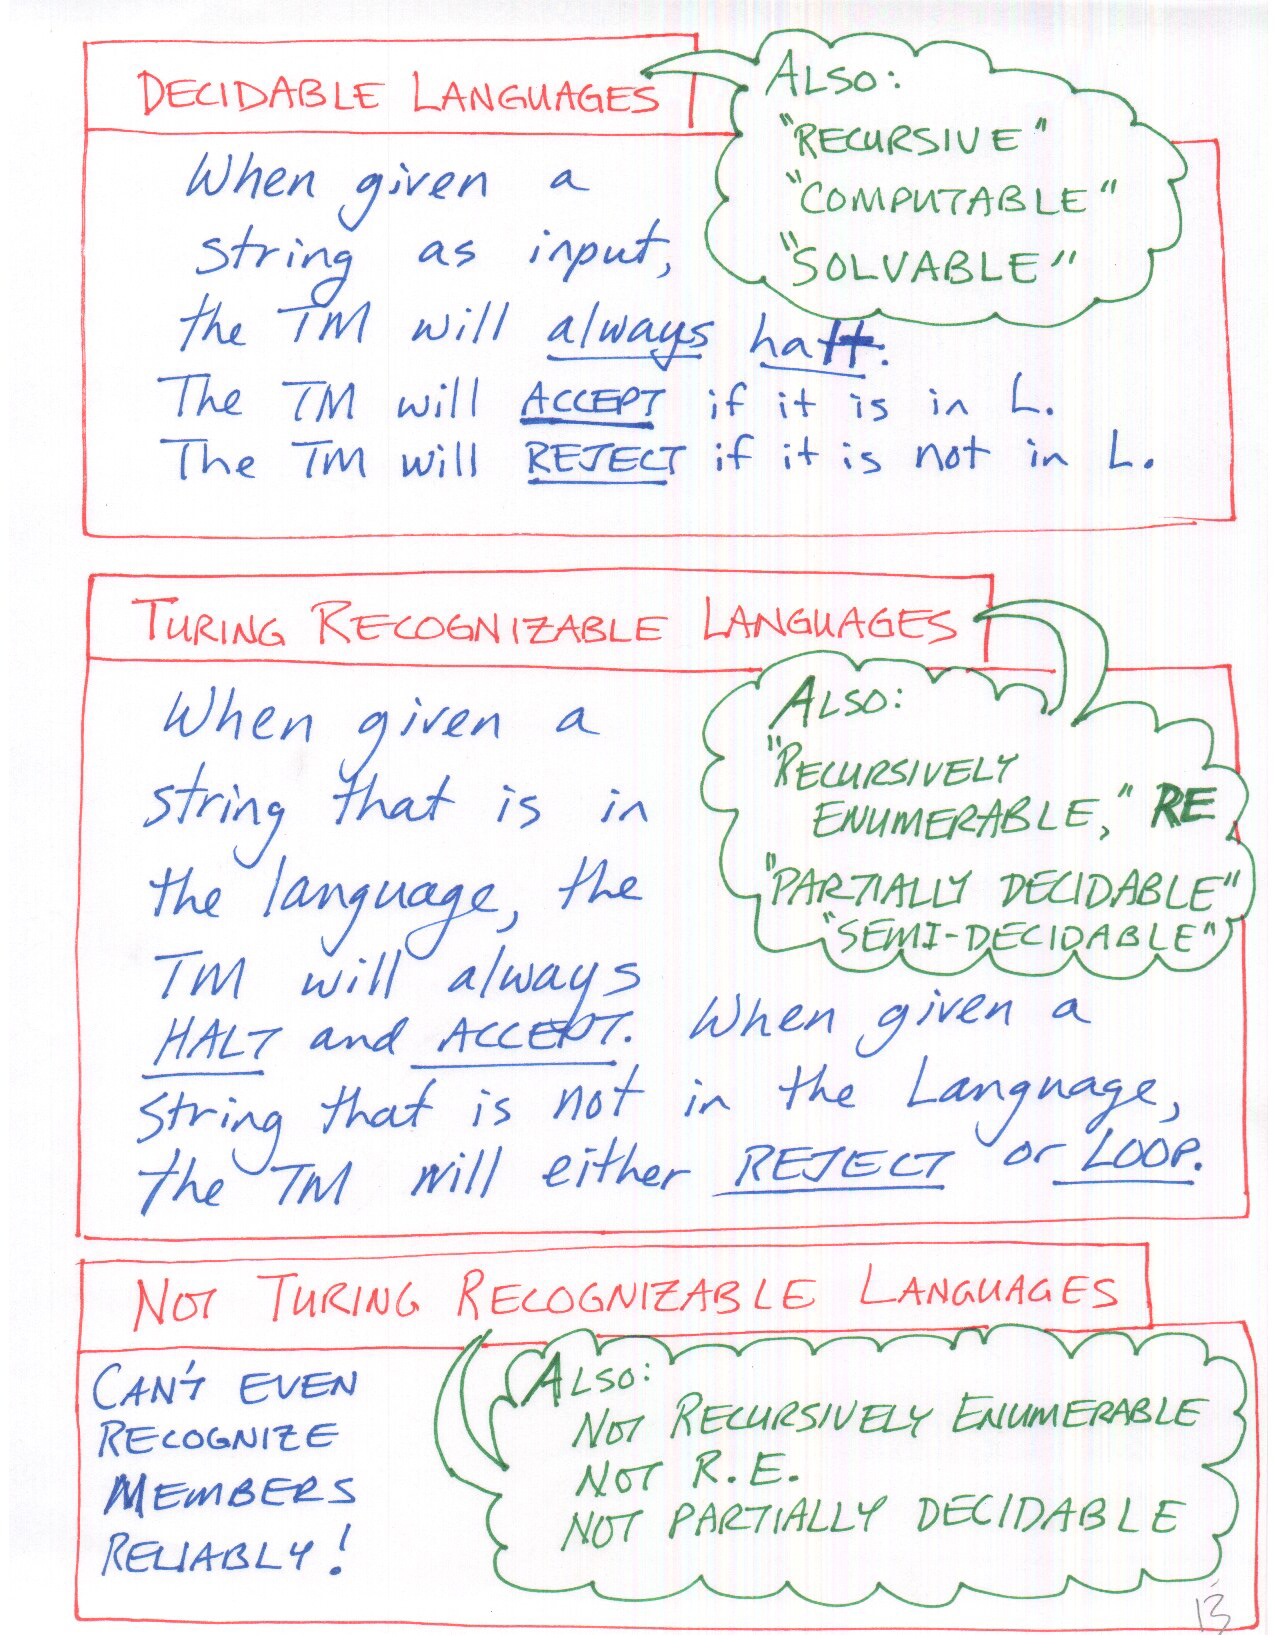 DECIDABLE LANGUAGES
ALSO:
"RECURSIVE"
"COMPUTABLE"
"SOLVABLE"
When given a
string as input,
the TM will always halt.
The TM will ACCEPT if it is in L.
The TM will REJECT if it is not in L.
TURING RECOGNIZABLE LANGUAGES
ALSO:
"RECURSIVELY
ENUMERABLE," RE
"PARTIALLY DECIDABLE"
"SEMI-DECIDABLE"
When given a
string that is in
the language, the
TM will always
HALT and ACCEPT. When given a
string that is not in the Language,
the TM will either REJECT or LOOP.
NOT TURING RECOGNIZABLE LANGUAGES
CAN'T EVEN
RECOGNIZE
MEMBERS
RELIABLY!
ALSO:
NOT RECURSIVELY ENUMERABLE
NOT R.E.
NOT PARTIALLY DECIDABLE
13